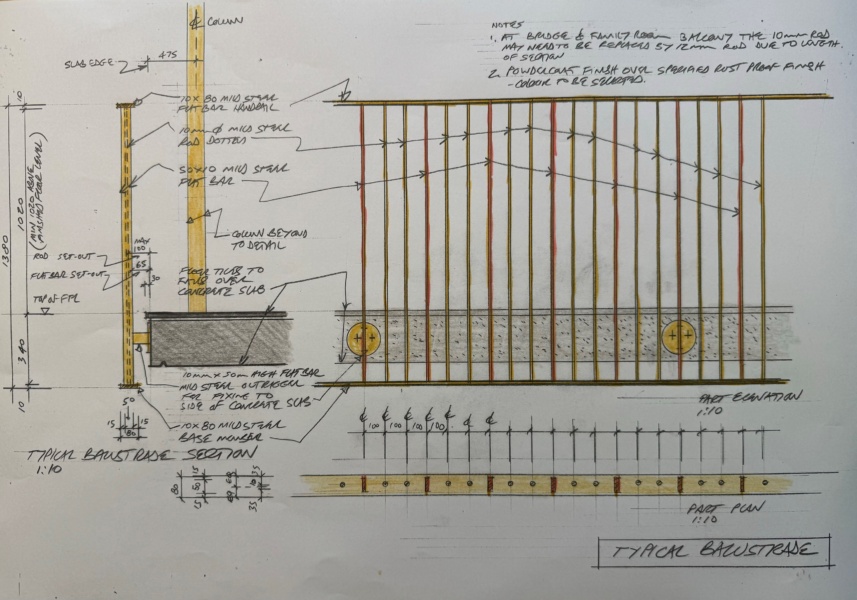 NOTES
1. AT BRIDGE & FAMILY ROOM BALCONY THE 10mm ROD
MAY NEED TO BE REPLACED BY 12mm ROD DUE TO LENGTH
OF SECTION
2. POWDERCOAT FINISH OVER SPECIFIED RUST PROOF FINISH
- COLOUR TO BE SELECTED.
℄ COLUMN
475
SLAB EDGE
10 X 80 MILD STEEL
FLAT BAR HANDRAIL
10mm ⌀ MILD STEEL
ROD DOTTED
50X10 MILD STEEL
FLAT BAR
COLUMN BEYOND
TO DETAIL
FLOOR TILES TO
FALLS OVER
CONCRETE SLAB
10
1020
(MIN 1020 ABOVE
FINISHED FLOOR LEVEL)
1380
340
10
ROD SET-OUT
FLATBAR SET-OUT
TOP OF FFL
MAX
65
30
10mm x 50m HIGH FLAT BAR
MILD STEEL OUTRIGGER
FOR FIXING TO
SIDE OF CONCRETE SLAB
10X80 MILD STEEL
BASE MEMBER
50
15 15
80
TYPICAL BALUSTRADE SECTION
1:10
PART ELEVATION
1:10
℄ ℄ ℄ ℄ ℄ ℄ ℄
100 100 100 100
80 15 50 15
35 35
PART PLAN
1:10
TYPICAL BALUSTRADE